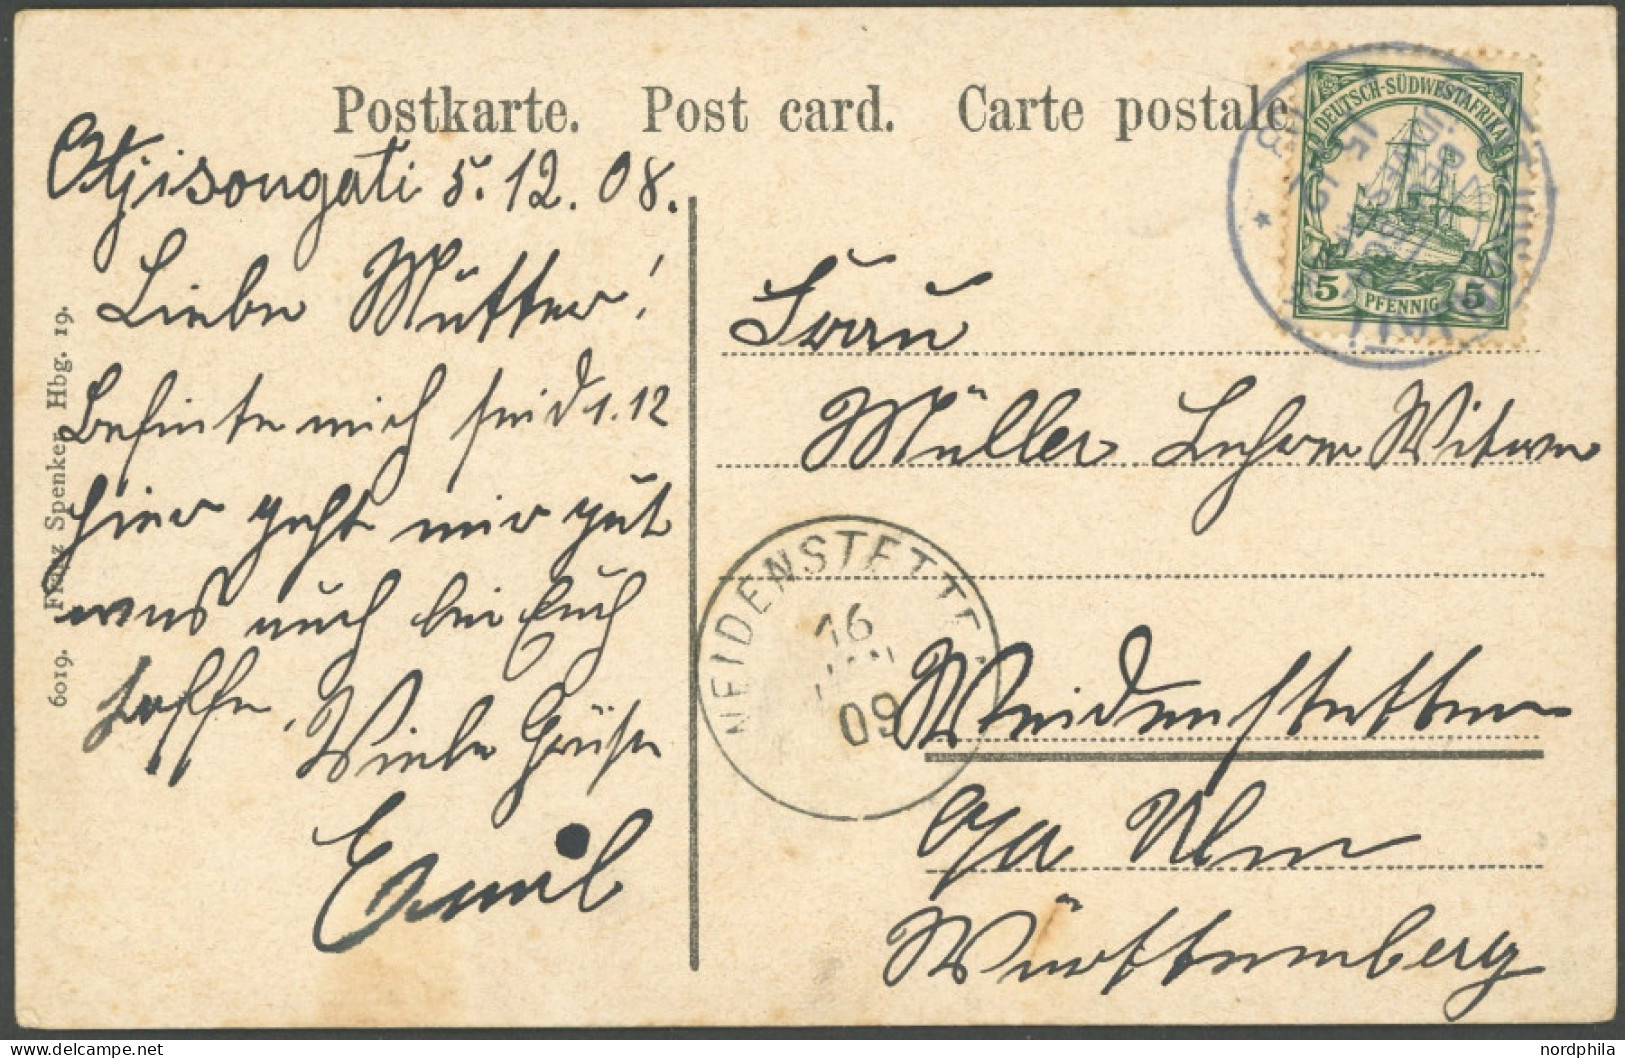 Postkarte. Post card. Carte postale
DEUTSCH-SÜDWESTAFRIKA
5 PFENNIG 5
Otjisongati 5.12.08.
Liebe Mutter!
Befinde mich seid 1.12
hier geht mir gut
was auch bei Euch
hoffe, Viele Grüße
Emil
6019. Fritz Spenker, Hbg. 19.
Frau
Müller Lehrer Witwe
WEIDENSTETTEN
16
09
Weidenstetten
O/A Ulm
Württemberg
nordphila